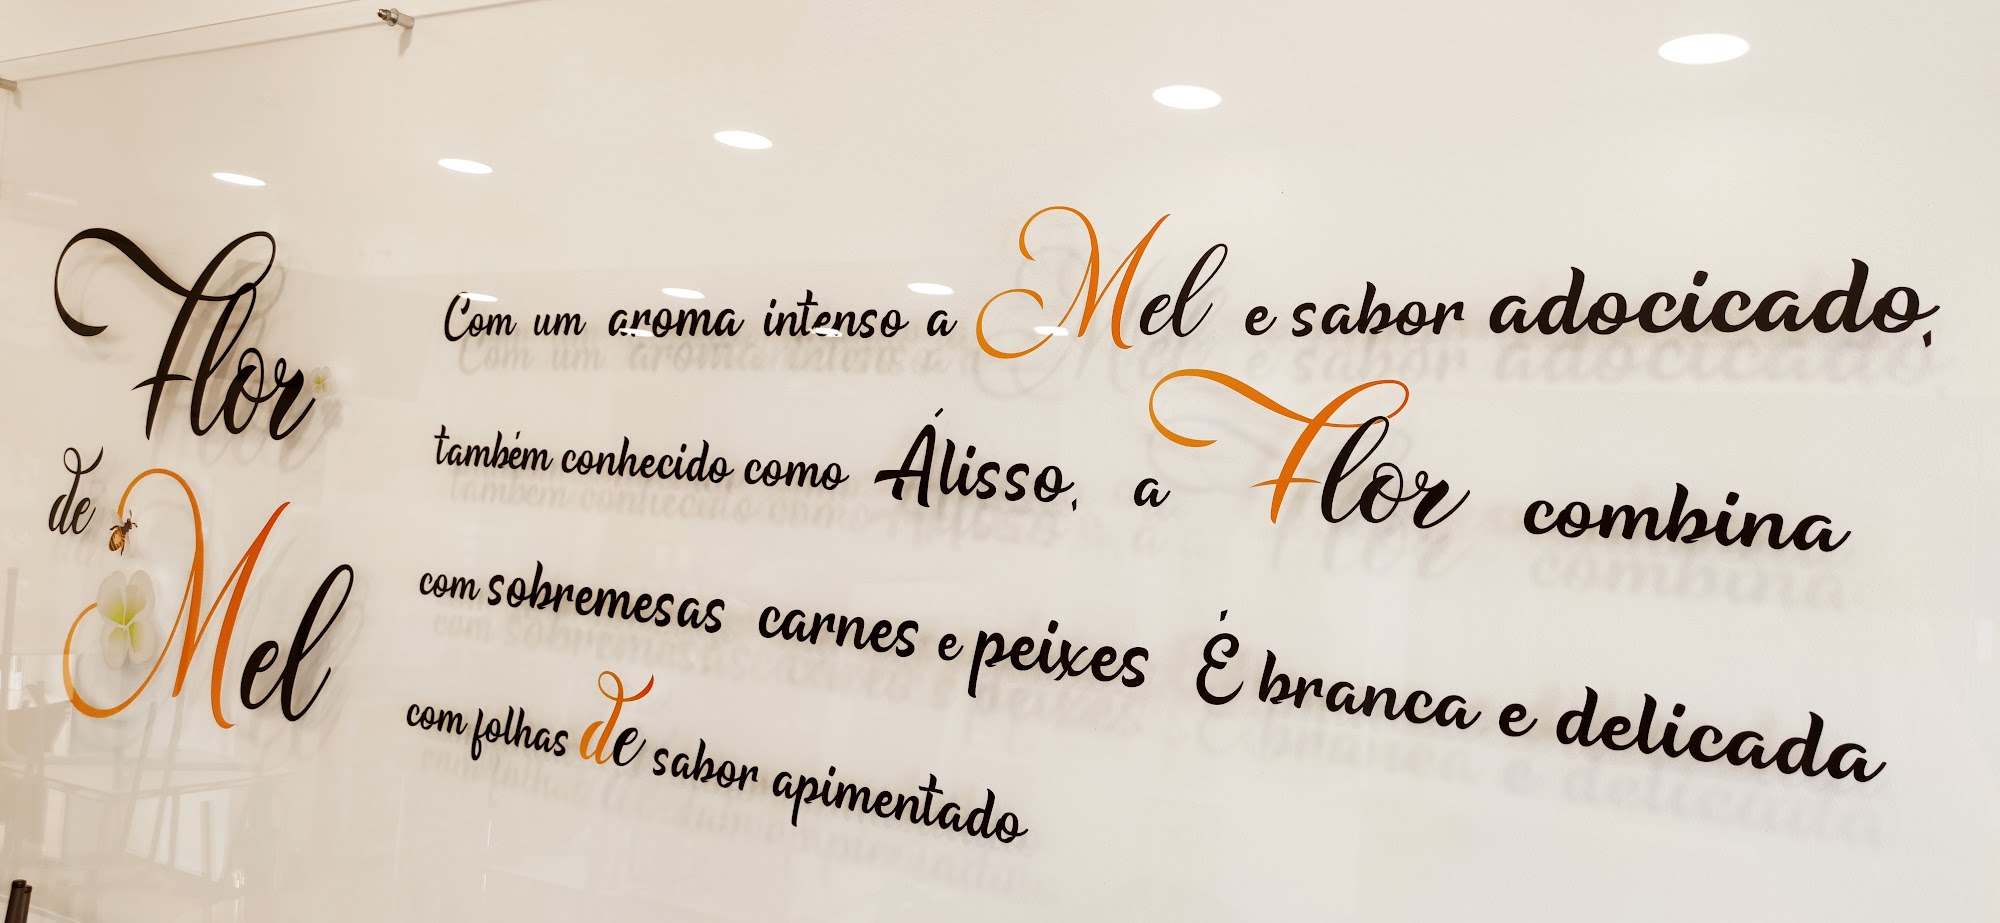 Flor
de
Mel
Com um aroma intenso a Mel e sabor adocicado,
também conhecido como Álisso, a Flor combina
com sobremesas carnes e peixes É branca e delicada
com folhas de sabor apimentado